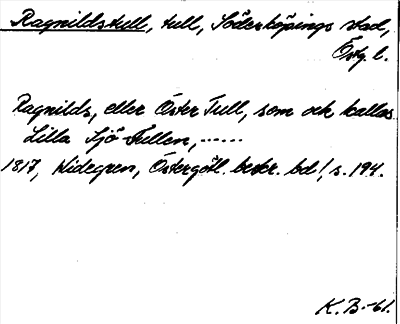 Ragnildstull, tull, Söderköpings stad,
Östg. l.
Ragnilds, eller Öster Tull, som och kallas
Lilla Sjö Tullen, ......
1817, Widegren, Östergötl. beskr. bd 1, s. 194.
K. B. -61.